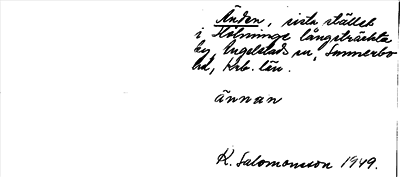 Änden, sista stället
i Hölminge långsträckta
by, Ingelstads sn, Sunnerbo
hd, Krb. län.
ännan
K. Salomonsson 1949.